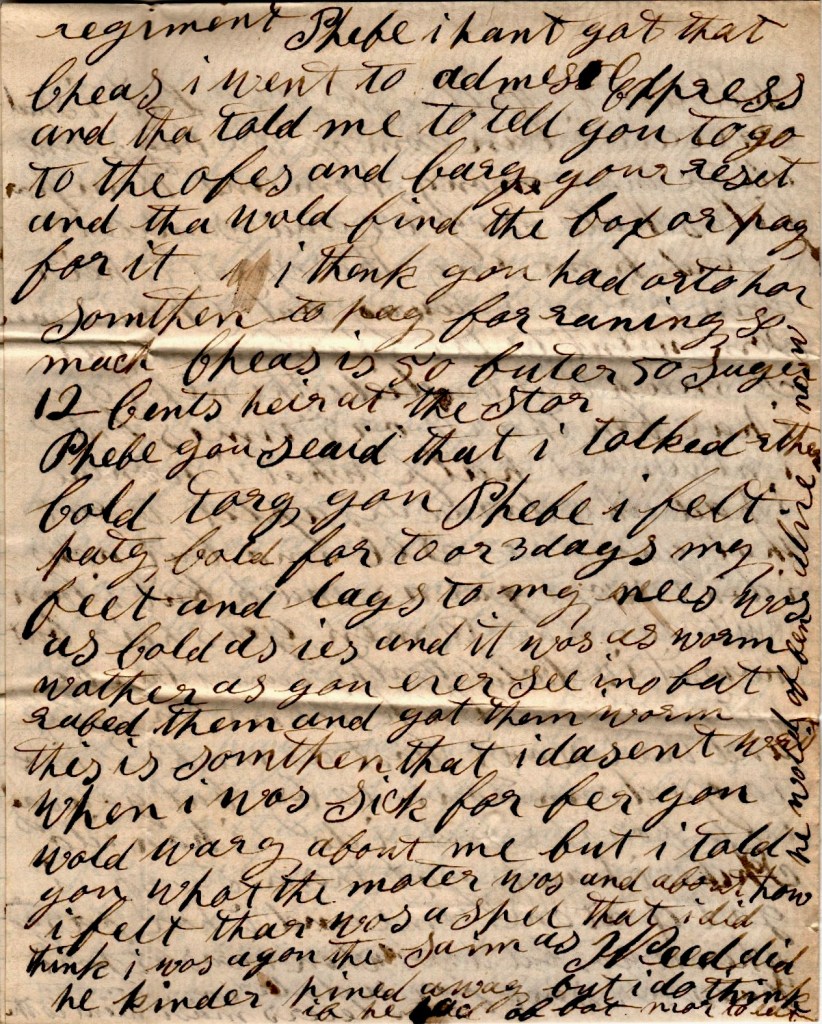 regiment Phebe i hant got that
Cheas i went to admes Express
and tha told me to tell you to go
to the ofes and carey your reset
and tha wold find the box or pay
for it i thenk you had orto hav
somthen to pay for runing so
mach Cheas is 50 buter 50 suger
12 Cents heir at the stor
Phebe you seaid that i talked rather
Cold torg you Phebe i felt
paty Cold for to or 3 days my
feet and lags to my nees was
as Cold as ies and it was as worm
wather as you ever see ino but
rubed them and got them worm
this is somthen that i dasent
when i was sick for fer you
wold warey about me but i told
you what the mater was and about how
i felt thar was a spel that i did
think i was agon the sam as Reed did
he kinder pined away but i do think
if he had of bot mor to eat
he wold of ben alive now